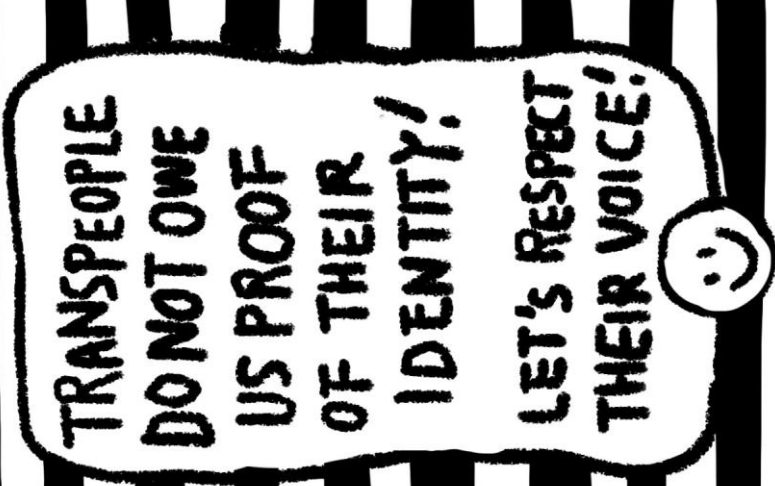 TRANSPEOPLE
DO NOT OWE
US PROOF
OF THEIR
IDENTITY!
LET'S RESPECT
THEIR VOICE!